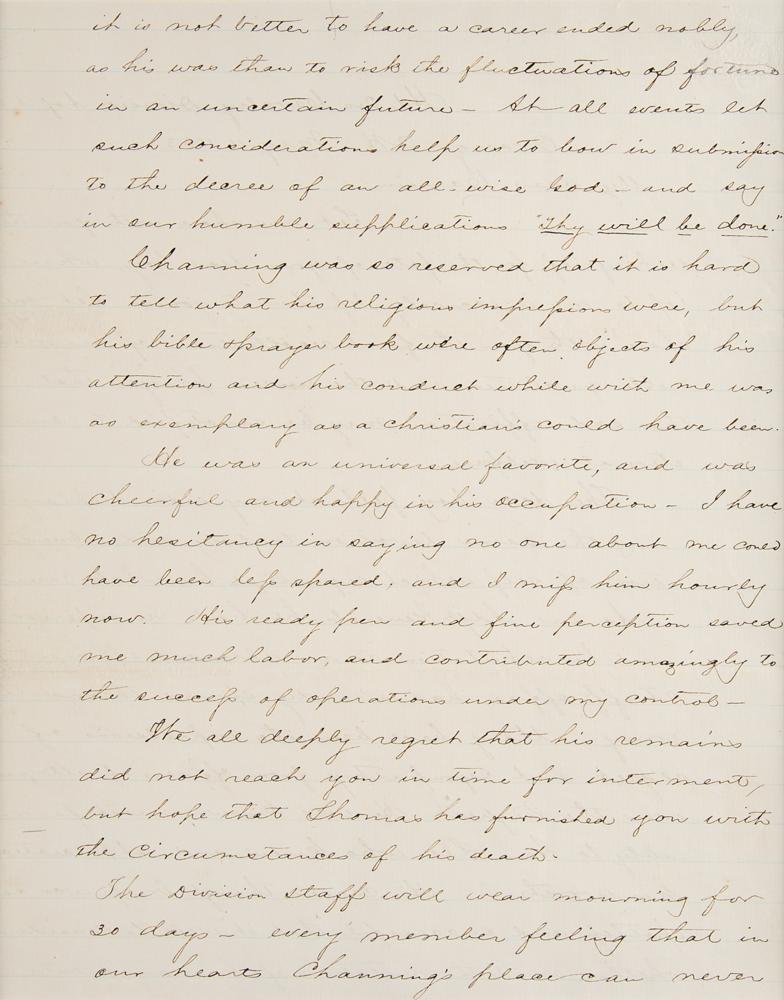 it is not better to have a career ended nobly,
as his was than to risk the fluctuations of fortune
in an uncertain future – At all events let
such considerations help us to bow in submission
to the decree of an all-wise God – and say
in our humble supplications "Thy will be done."
Channing was so reserved that it is hard
to tell what his religious impressions were, but
his bible & prayer book were often objects of his
attention and his conduct while with me was
as exemplary as a christian's could have been.
He was an universal favorite, and was
cheerful and happy in his occupation – I have
no hesitancy in saying no one about me could
have been less spared, and I miss him hourly
now. His ready pen and fine perception saved
me much labor, and contributed amazingly to
the success of operations under my control –
We all deeply regret that his remains
did not reach you in time for interment,
but hope that Thomas has furnished you with
the circumstances of his death.
The Division staff will wear mourning for
30 days – every member feeling that in
our hearts Channing's place can never